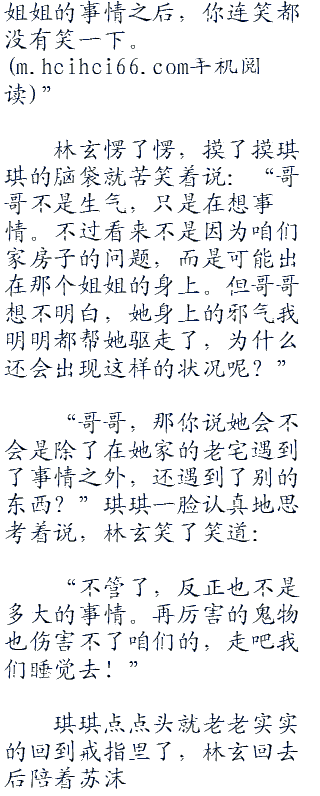 姐姐的事情之后，你连笑都
没有笑一下。
(m.hcihci66.com手机阅
读)”
林玄愣了愣，摸了摸琪
琪的脑袋就苦笑着说：“哥
哥不是生气，只是在想事
情。不过看来不是因为咱们
家房子的问题，而是可能出
在那个姐姐的身上。但哥哥
想不明白，她身上的邪气我
明明都帮她驱走了，为什么
还会出现这样的状况呢？”
“哥哥，那你说她会不
会是除了在她家的老宅遇到
了事情之外，还遇到了别的
东西？”琪琪一脸认真地思
考着说，林玄笑了笑道：
“不管了，反正也不是
多大的事情。再厉害的鬼物
也伤害不了咱们的，走吧我
们睡觉去！”
琪琪点点头就老老实实
的回到戒指里了，林玄回去
后陪着苏沫